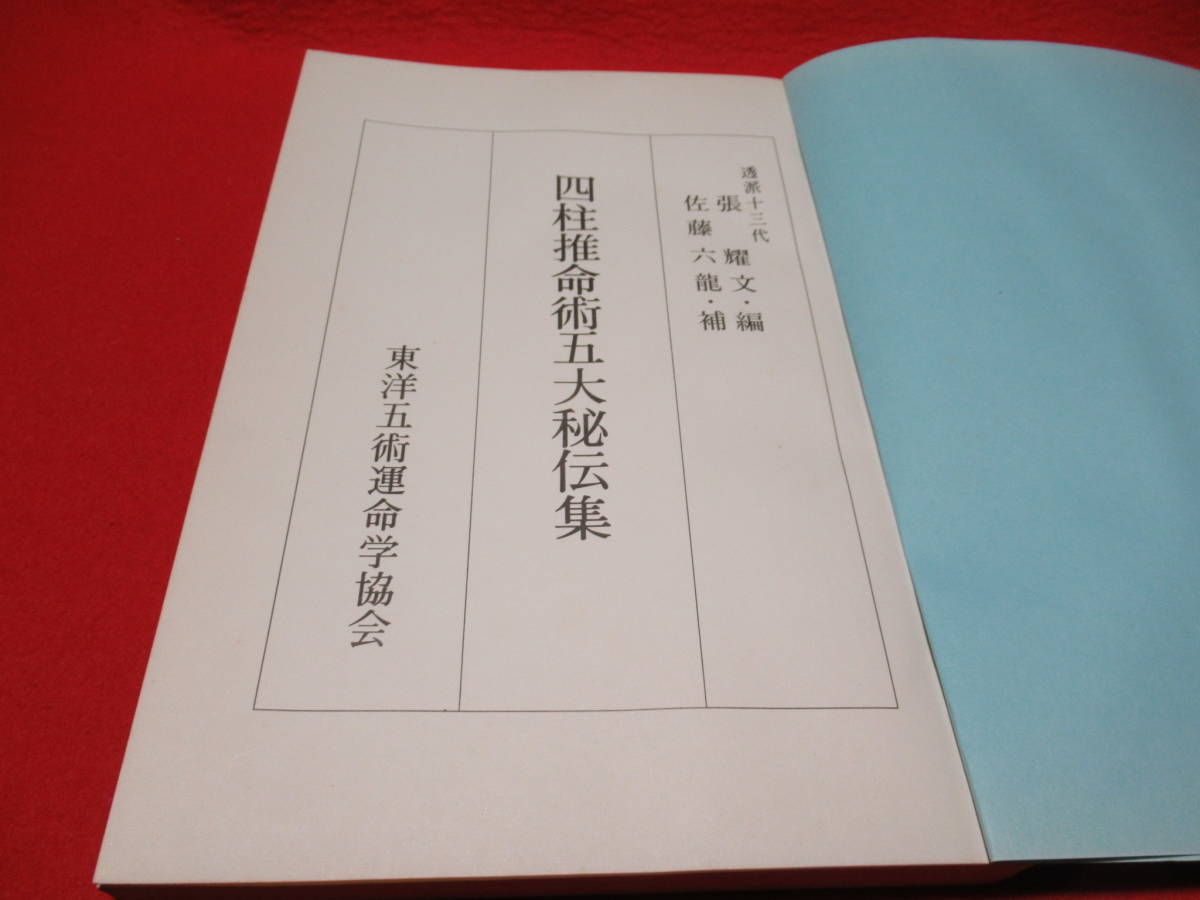 透派十三代
張耀文・編
佐藤六龍・補
四柱推命術五大秘伝集
東洋五術運命学協会